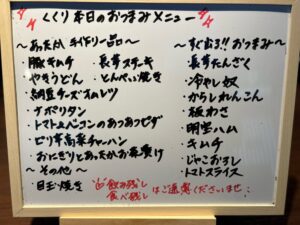 くくり 本日のおつまみメニュー
〜あったか 手作り一品〜
・豚キムチ
・長芋ステーキ
・やきうどん
・とんぺい焼き
・納豆チーズオムレツ
・ナポリタン
・トマトとベーコンのあつあつピザ
・ピリ辛高菜チャーハン
・おにぎりとあったかお茶漬け
〜その他〜
・目玉焼き
〜すぐ出る!! おつまみ〜
・長芋たんざく
・冷やし奴
・からしれんこん
・板わさ
・明宝ハム
・キムチ
・じゃこおろし
・トマトスライス
飲み残し
食べ残し
はご遠慮くださいませ